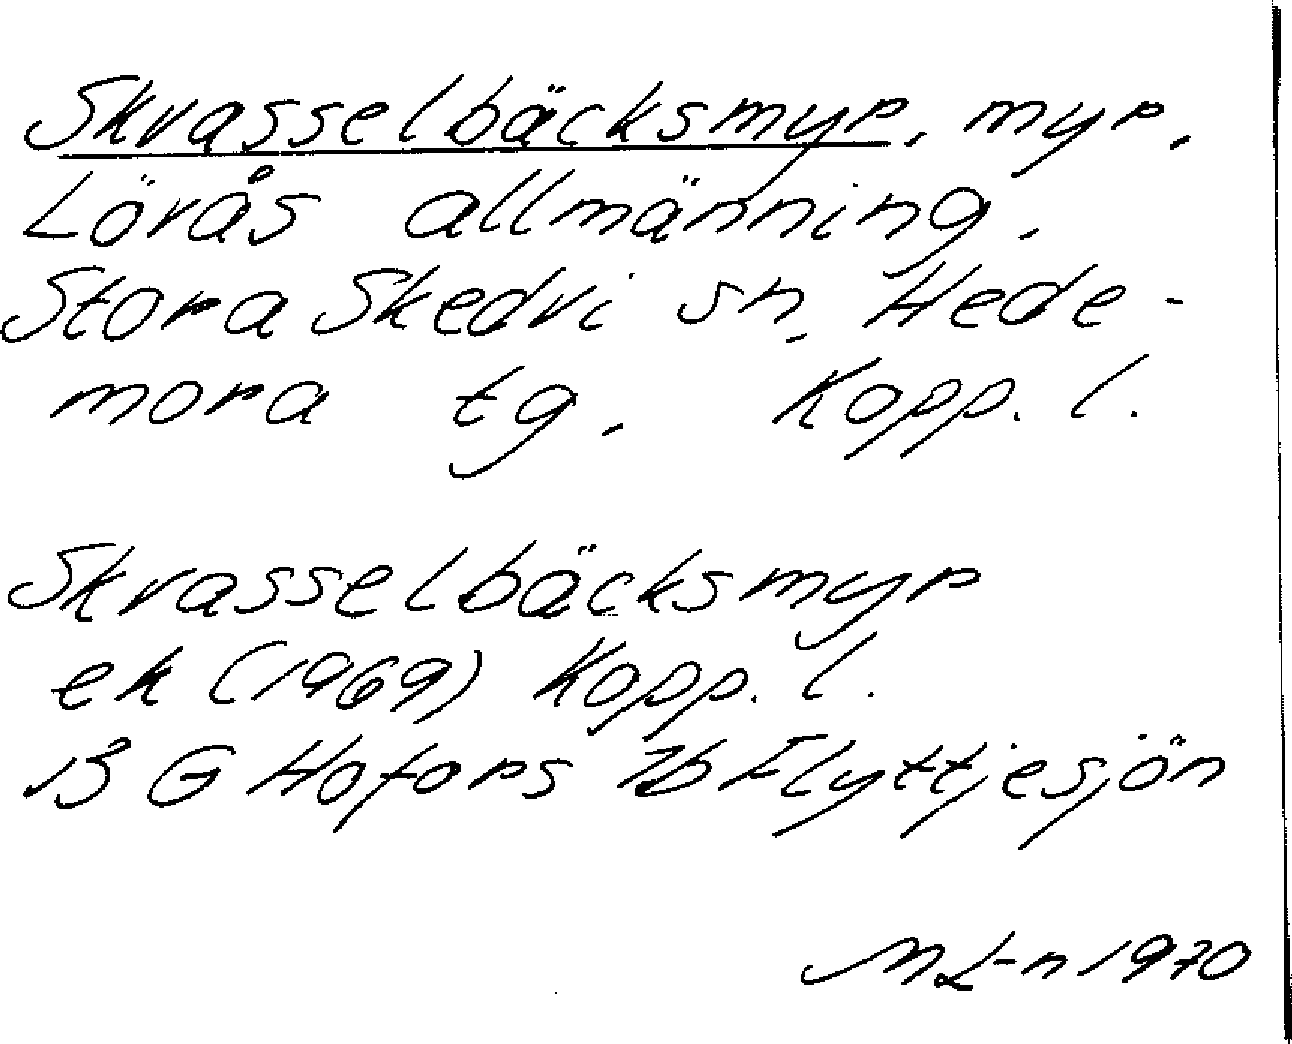 Skvasselbäcksmyr, myr,
Lövås allmänning,
Stora Skedvi sn, Hede-
mora tg, Kopp. l.
Skvasselbäcksmyr
ek (1969) Kopp. l.
13 G Hofors 7b Flyttjesjön
ML-n 1970